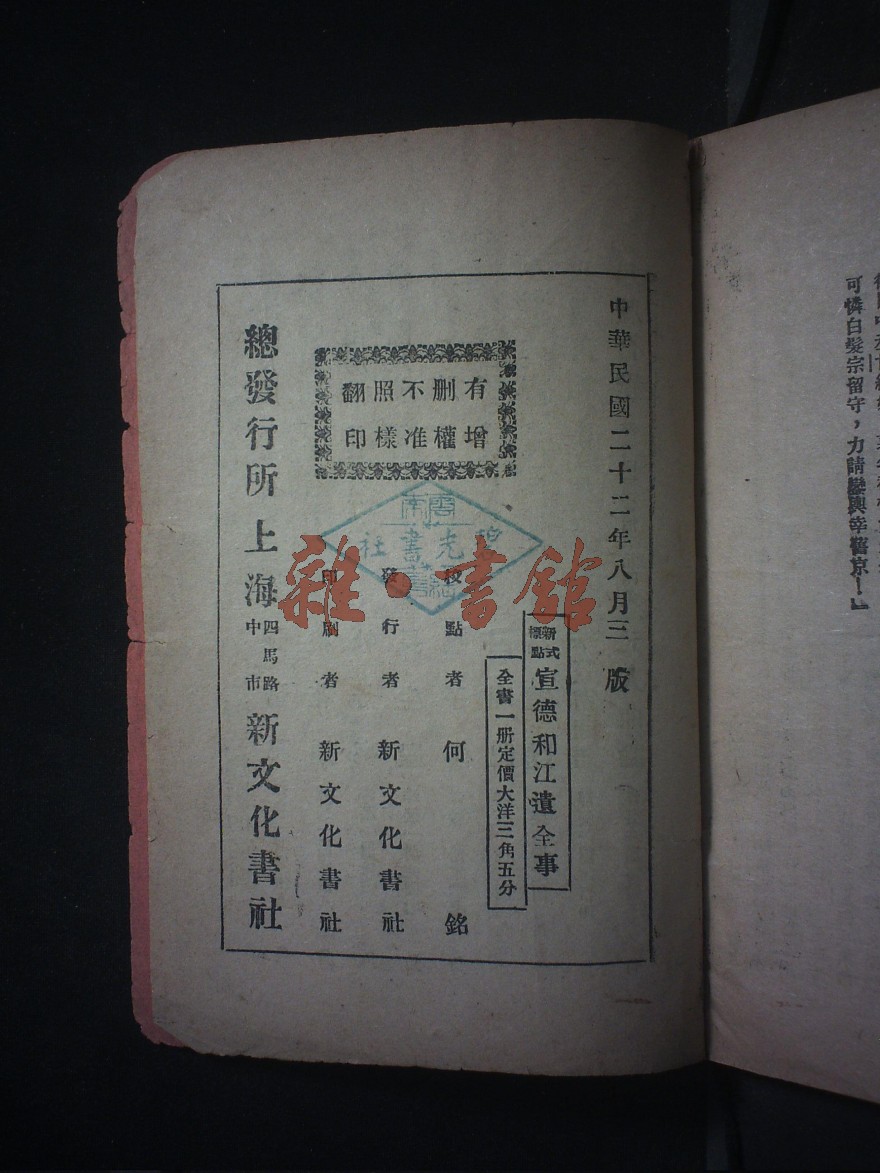 可憐白髮宗留守，力請鑾輿幸舊京！」
中華民國二十二年八月三版
新式標點
宣德和江遺全事
全書一册定價大洋三角五分
有增
刪權
不准
照樣
翻印
校點者 何銘
發行者 新文化書社
印刷者 新文化書社
總發行所上海四馬路中市新文化書社
光書社
雜·書館